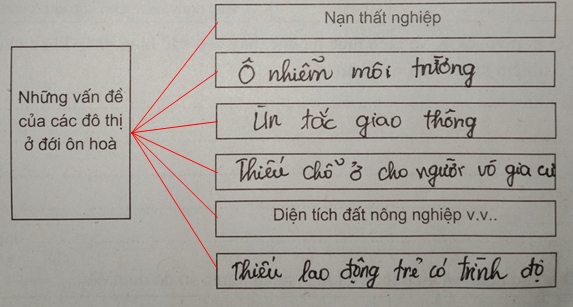 Nạn thất nghiệp
Ô nhiễm môi trường
Những vấn đề
của các đô thị
ở đới ôn hoà
Ùn tắc giao thông
Thiếu chỗ ở cho người vô gia cư
Diện tích đất nông nghiệp v.v..
Thiếu lao động trẻ có trình độ